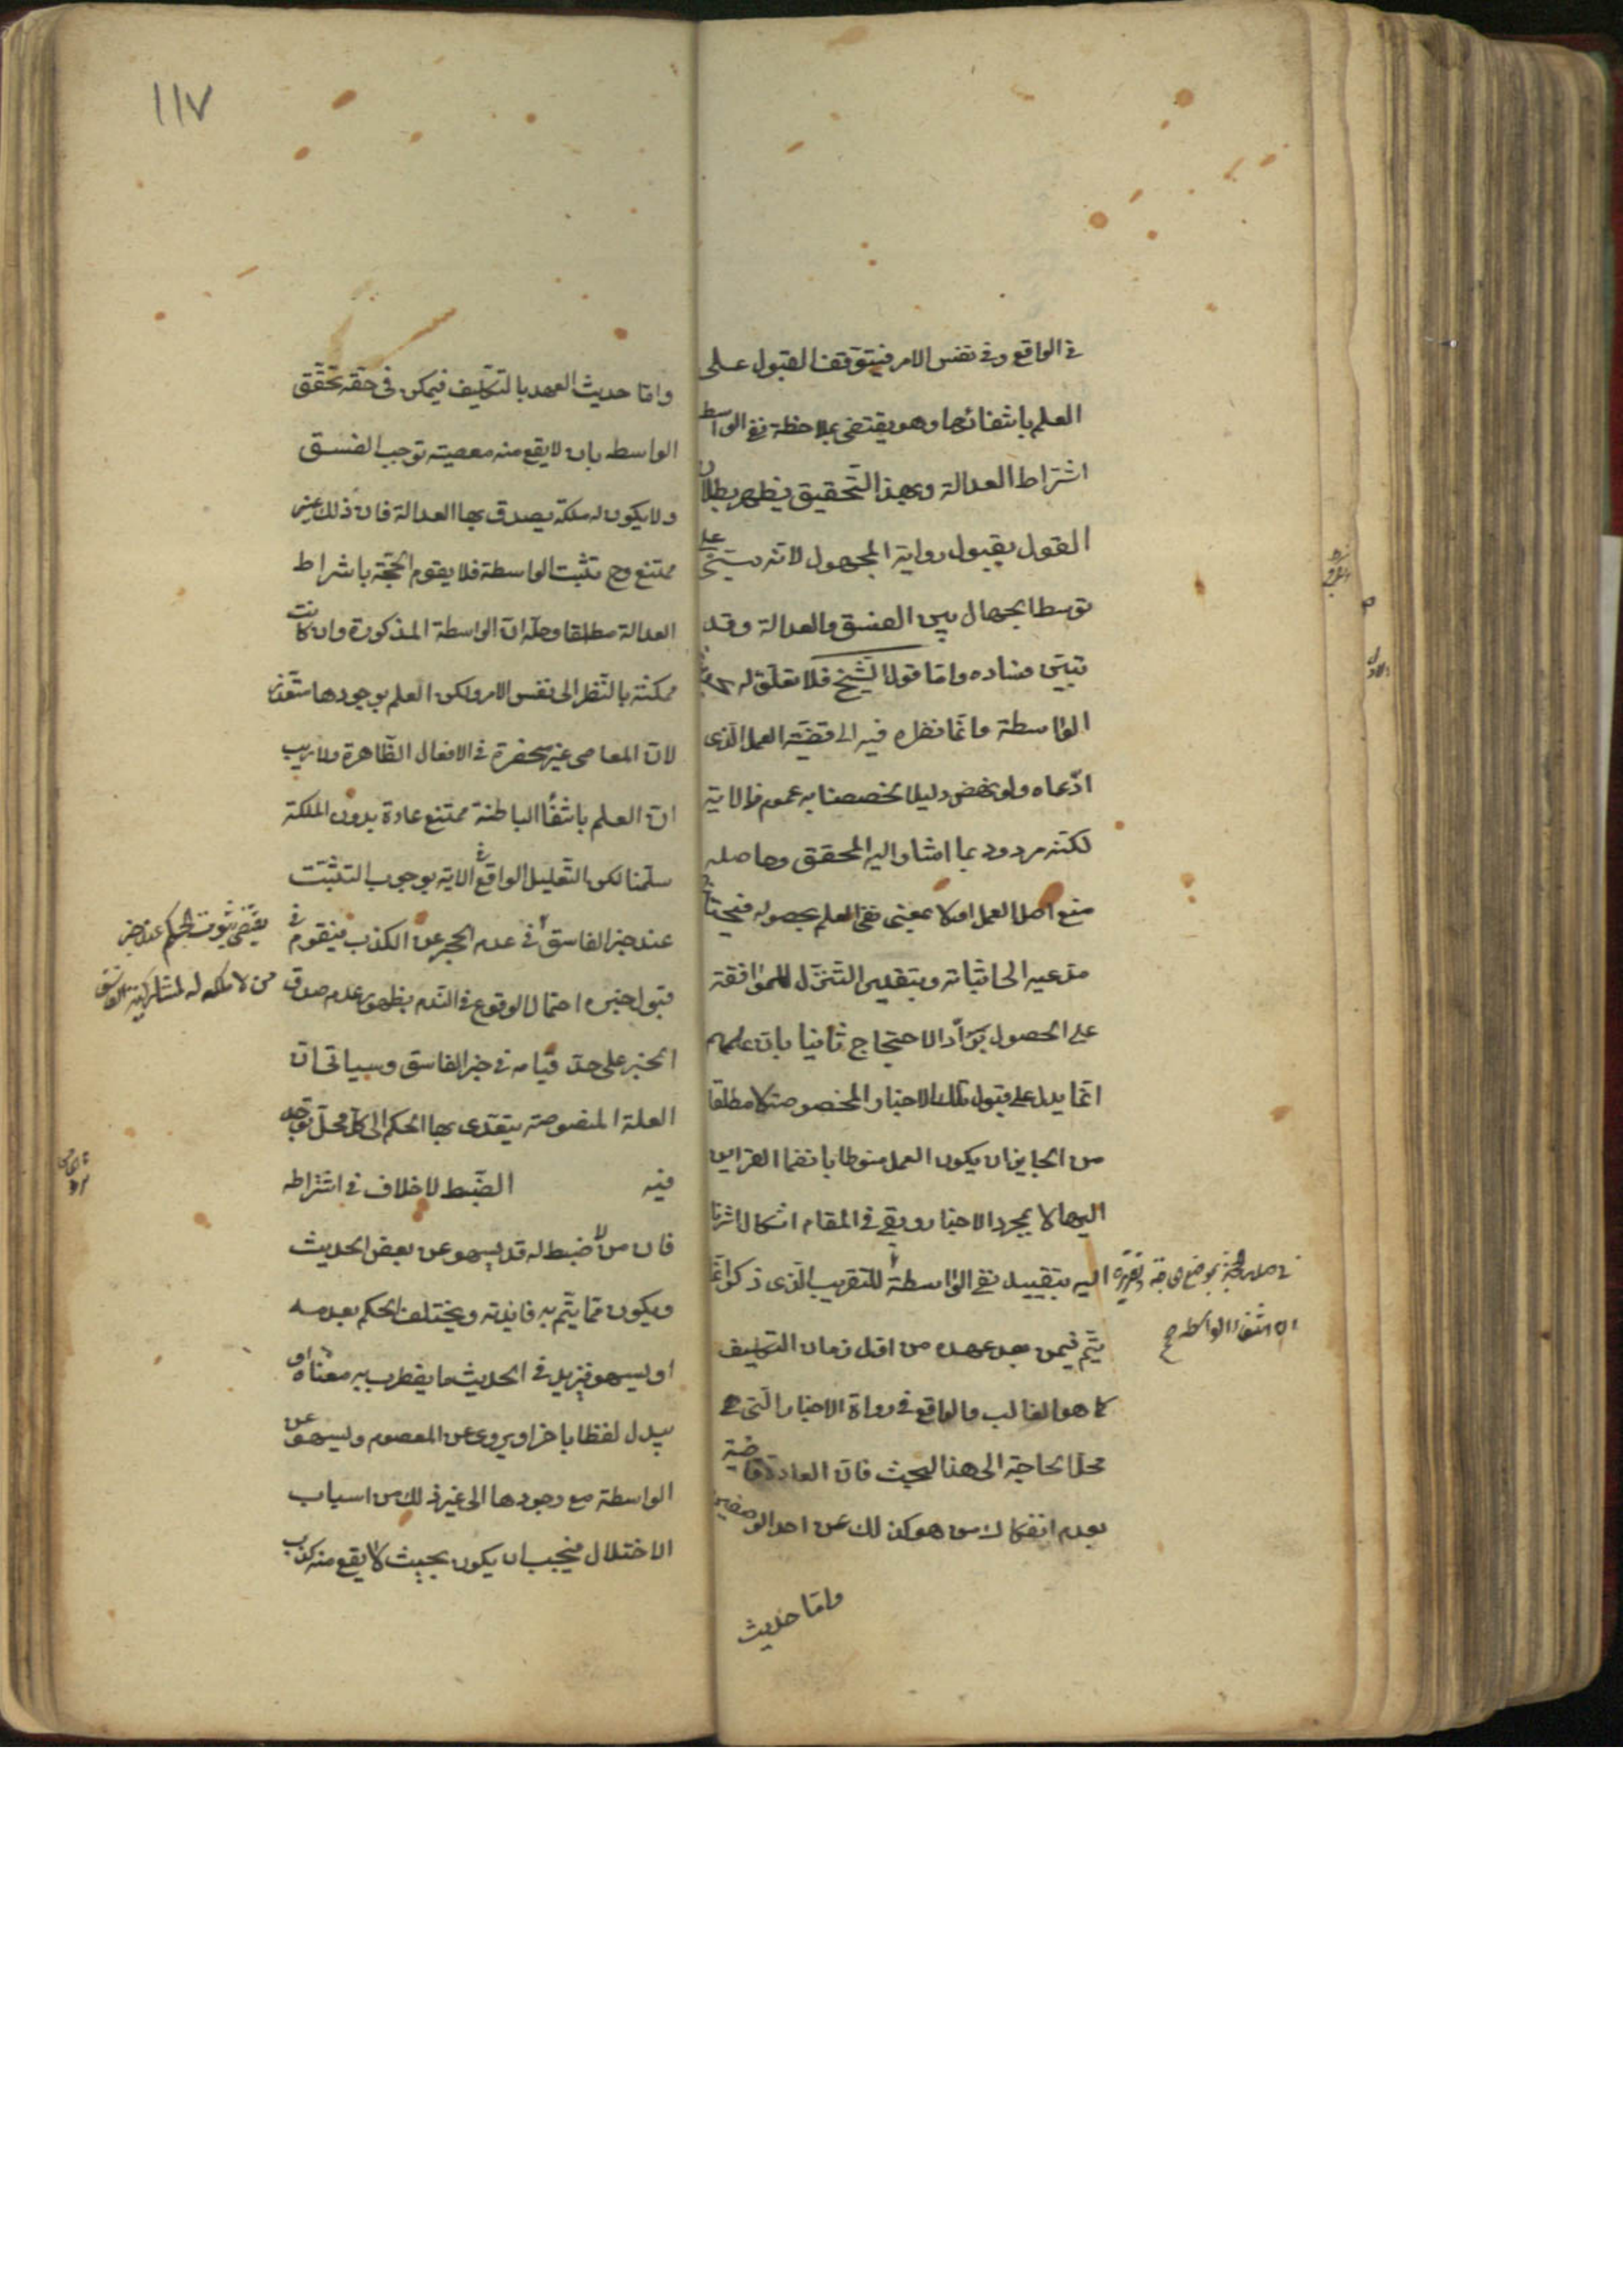 في الواقع وفي نفس الامر فيتوقف القبول على
العلم بانتفائها وهو يقتضي بملاحظة نفي الواسطة
اشتراط العدالة وبهذا التحقيق يظهر بطلان
القول بقبول رواية المجهول لانه مبني على
توسط الجهال بين الفسق والعدالة وقد
تبين فساده واما قول الشيخ فلا تعلق له
الواسطة وانما نظره فيه الى قضية العمل الذي
ادعاه ولو نهض دليلا لخصصنا به عموم ظ الاية
لكنه مردود بما اشار اليه المحقق وحاصله
منع اصل العمل اولا بمعنى نفي العلم بحصوله فيحتاج
مدعيه الى اثباته وبتقدير التنزل للموافقة
على الحصول يرد الاحتجاج ثانيا بان علمهم
انما يدل على قبول تلك الاخبار المخصوصة لا مطلقا
من الجايز ان يكون العمل منوطا بانضمام القراين
اليها لا بمجرد الاخبار وبقي في المقام اشكال اشرنا
اليه بتقييد نفي الواسطة للتقريب الذي ذكر انما
يتم فيمن بعد عهده من اول زمان التكليف
كما هو الغالب والواقع في رواة الاخبار التي هي
محل الحاجة الى هذا البحث فان العادة قاضية
بعدم انفكاك من هو كذلك عن احد الوصفين
واما حديث
١١٧
واما حديث العهد بالتكليف فيمكن في حقه تحقق
الواسطه بان لا يقع منه معصيته توجب الفسق
ولا يكون له ملكة يصدق بها العدالة فان ذلك غير
ممتنع وح تثبت الواسطة فلا يقوم الحجة باشراط
العدالة مطلقا وحله ان الواسطة المذكورة وان كانت
ممكنة بالنظر الى نفس الامر ولكن العلم بوجودها متعذر
لان المعاصي غير منحصرة في الافعال الظاهرة ولا ريب
ان العلم بانتفاء الباطنة ممتنع عادة بدون الملكة
سلمنا لكن التعليل الواقع في الاية بوجوب التثبت
عند خبر الفاسق في عدم الحجر عن الكذب فيقوم في
يقتضي ثبوت الحكم عند خبر
من لا ملكه له لمشاركته الفاسق
قبول خبره احتمال الوقوع في الندم بظهور عدم صدق
الخبر على حد قيامه في خبر الفاسق وسياتي ان
العلة المنصوصة يتعدى بها الحكم الى كل محل توجد
فيه الضبط لا خلاف في اشتراطه
فان من لا ضبط له قد يسهو عن بعض الحديث
ويكون مما يتم به فايدته ويختلف الحكم بعدمه
او يسهو فيزيد في الحديث ما يضطرب به معناه او
يبدل لفظا باخر او يروي عن المعصوم ويسهو عن
الواسطة مع وجودها الى غير ذلك من اسباب
الاختلال فيجب ان يكون بحيث لا يقع منه كذب